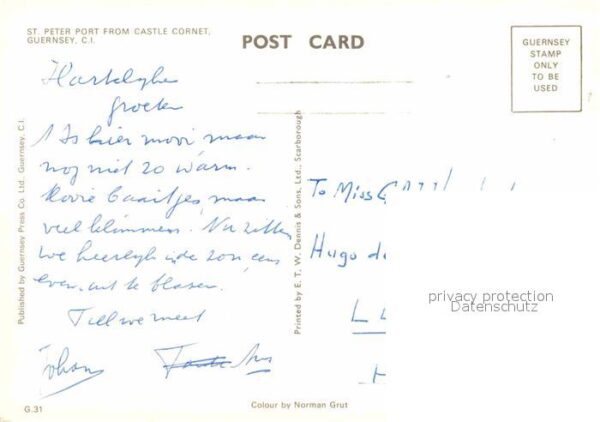 ST. PETER PORT FROM CASTLE CORNET,
GUERNSEY, C.I.
POST CARD
GUERNSEY
STAMP
ONLY
TO BE
USED
Hartelyke
groeten
't Is hier mooi, maar
nog niet zo warm.
Mooie baaitjes, maar
veel klimmen. Nu zitten
we heerlijk in de zon een
even uit te blazen.
Till we meet
Johan
Published by Guernsey Press Co. Ltd. Guernsey, C.I.
Printed by E. T. W. Dennis & Sons, Ltd., Scarborough
To Miss
Hugo de
privacy protection
Datenschutz
G.31
Colour by Norman Grut